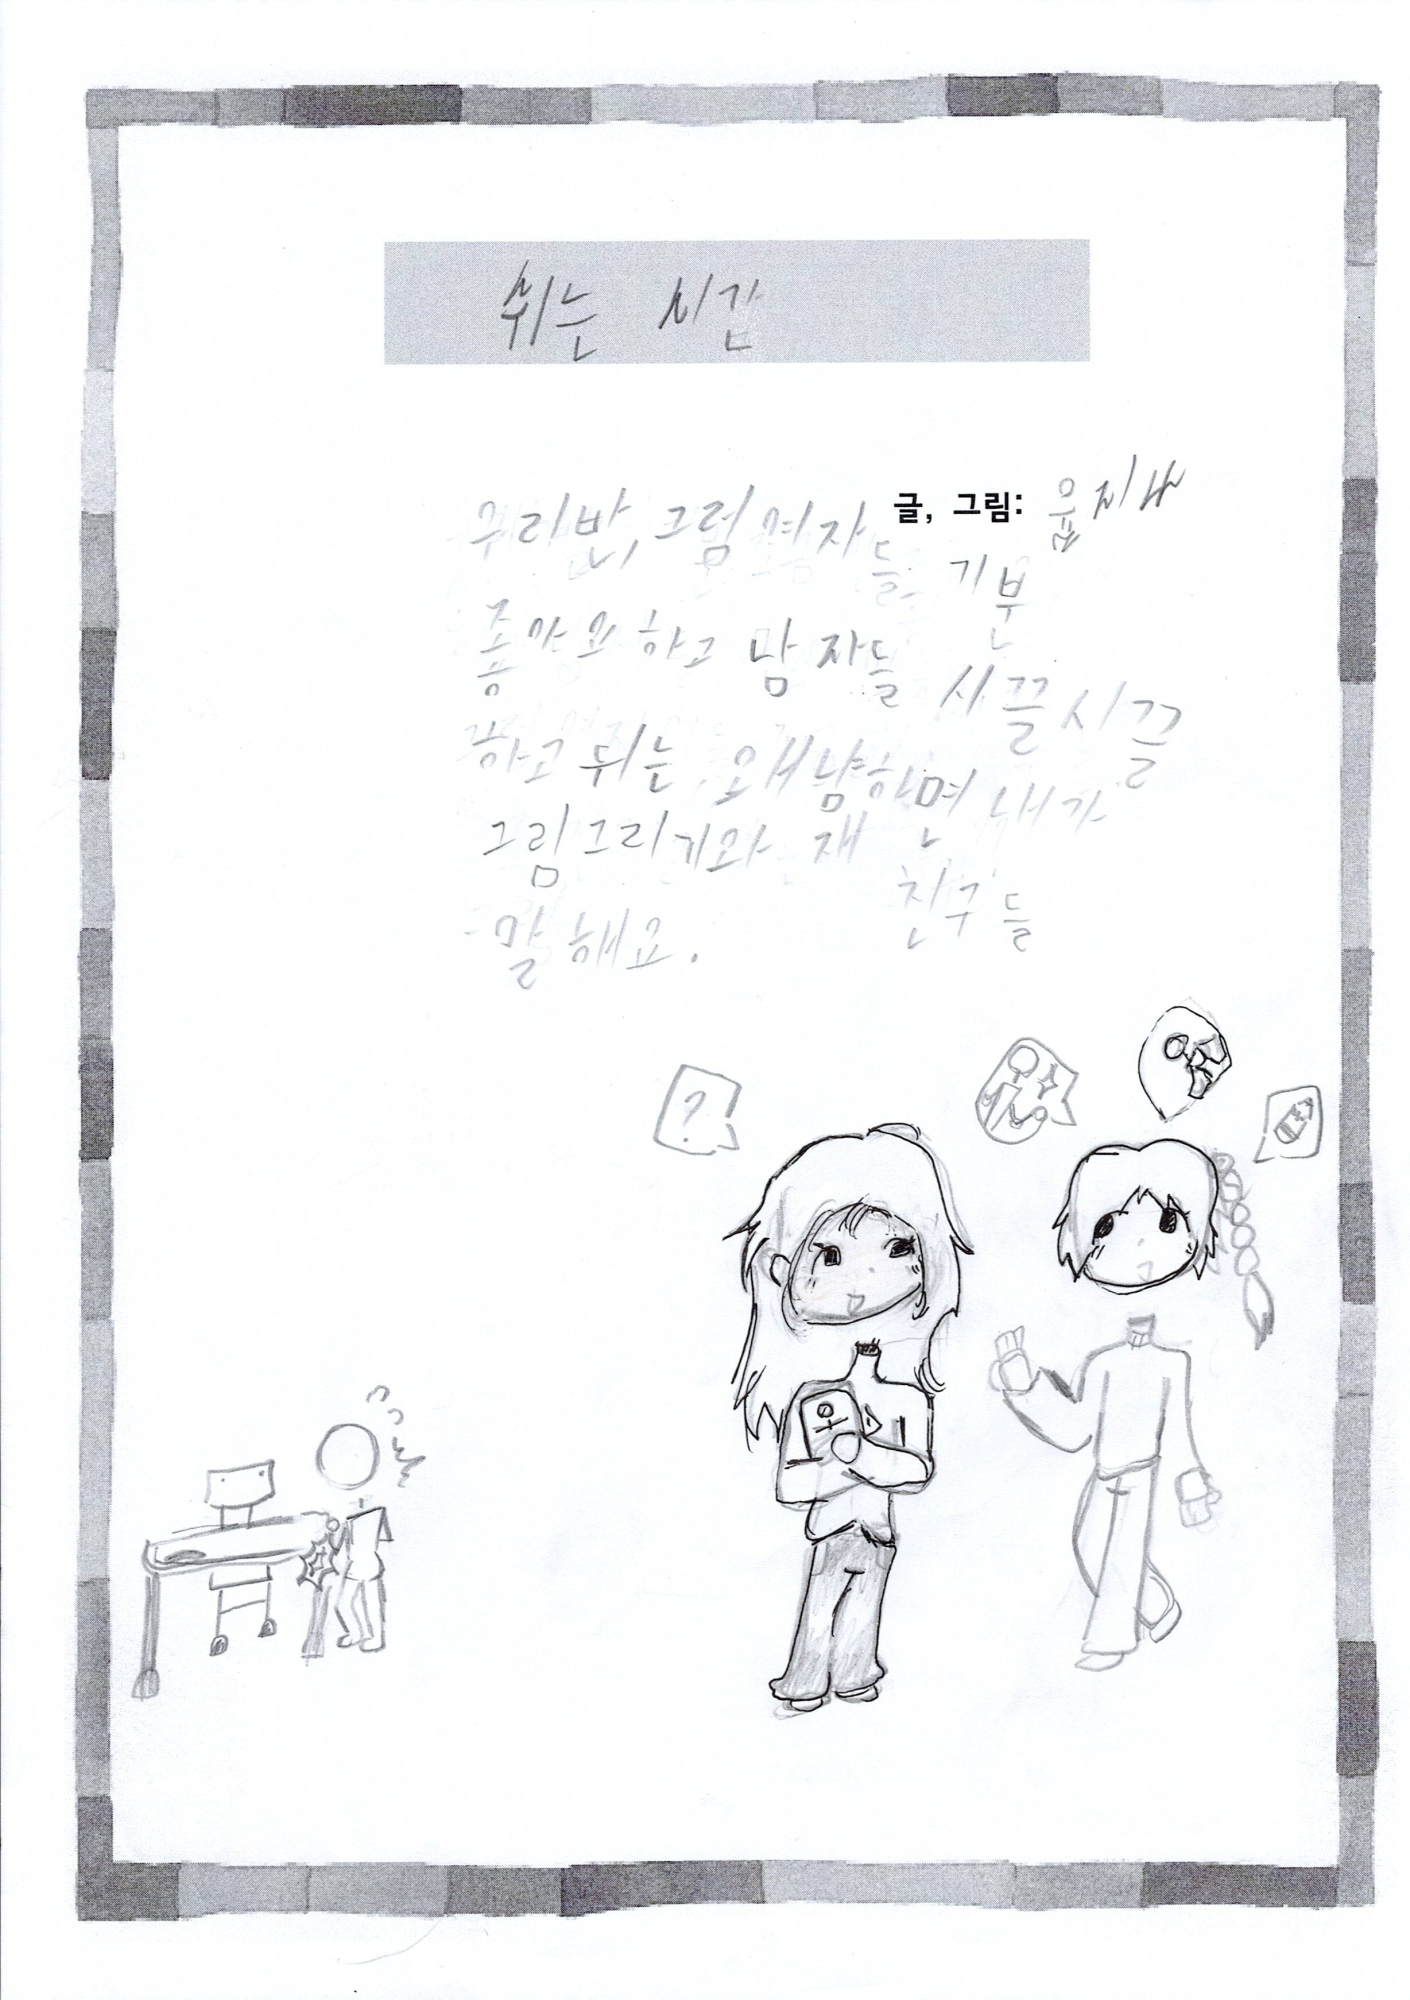 쉬는 시간
글, 그림:
우리반, 그럼 여자들 기분
좋아요 하고 남자들 시끌시끌
하고 뛰는, 왜냠하면 내가
그림그리기와 재 친구들
말해요.
?